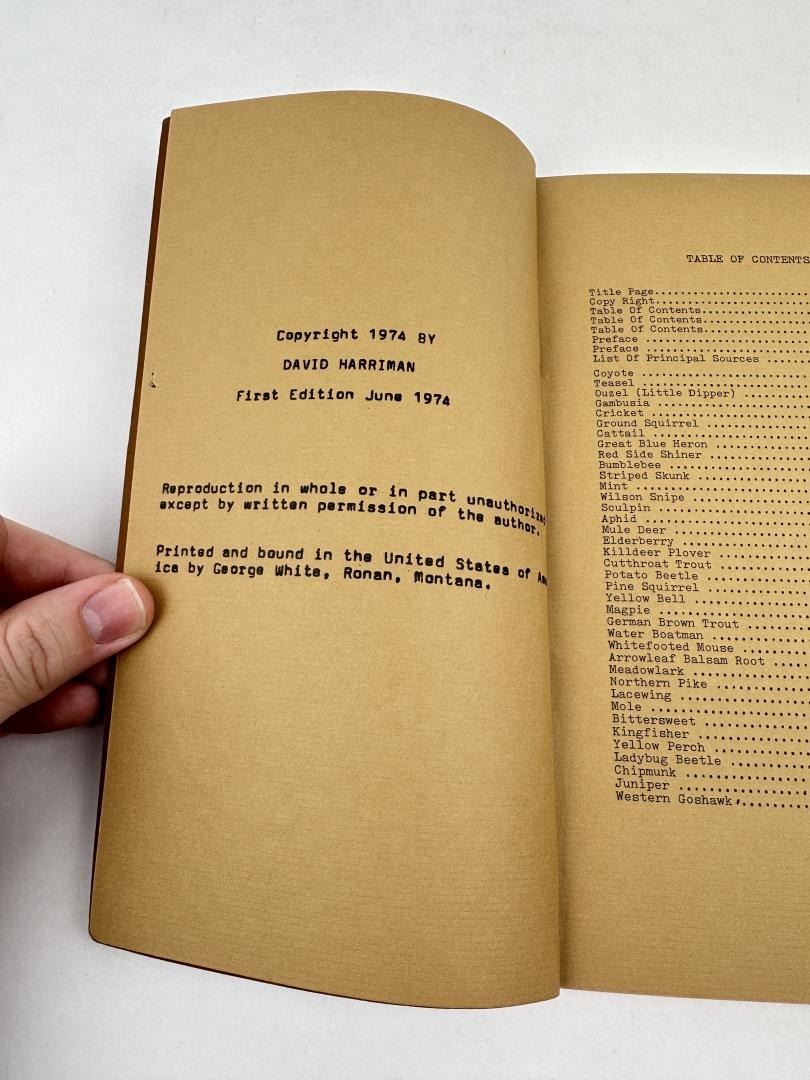 Copyright 1974 BY
DAVID HARRIMAN
First Edition June 1974
Reproduction in whole or in part
except by written permission of the author.
Printed and bound in the United States of
ica by George White, Ronan, Montana.
TABLE OF CONTENTS
Title Page..................
Copy Right..................
Table Of Contents...............
Table Of Contents...............
Table Of Contents...............
Preface ....................
Preface ....................
List Of Principal Sources ......
Coyote .......................
Teasel .......................
Ouzel (Little Dipper) .........
Gambusia .....................
Cricket ......................
Ground Squirrel ..............
Cattail ......................
Great Blue Heron .............
Red Side Shiner ..............
Bumblebee ....................
Striped Skunk ................
Mint .........................
Wilson Snipe .................
Sculpin ......................
Aphid ........................
Mule Deer ....................
Elderberry ...................
Killdeer Plover ..............
Cutthroat Trout ..............
Potato Beetle ................
Pine Squirrel ................
Yellow Bell ..................
Magpie .......................
German Brown Trout ...........
Water Boatman ................
Whitefooted Mouse ............
Arrowleaf Balsam Root ........
Meadowlark ...................
Northern Pike ................
Lacewing .....................
Mole .........................
Bittersweet ..................
Kingfisher ...................
Yellow Perch .................
Ladybug Beetle ...............
Chipmunk .....................
Juniper ......................
Western Goshawk ..............